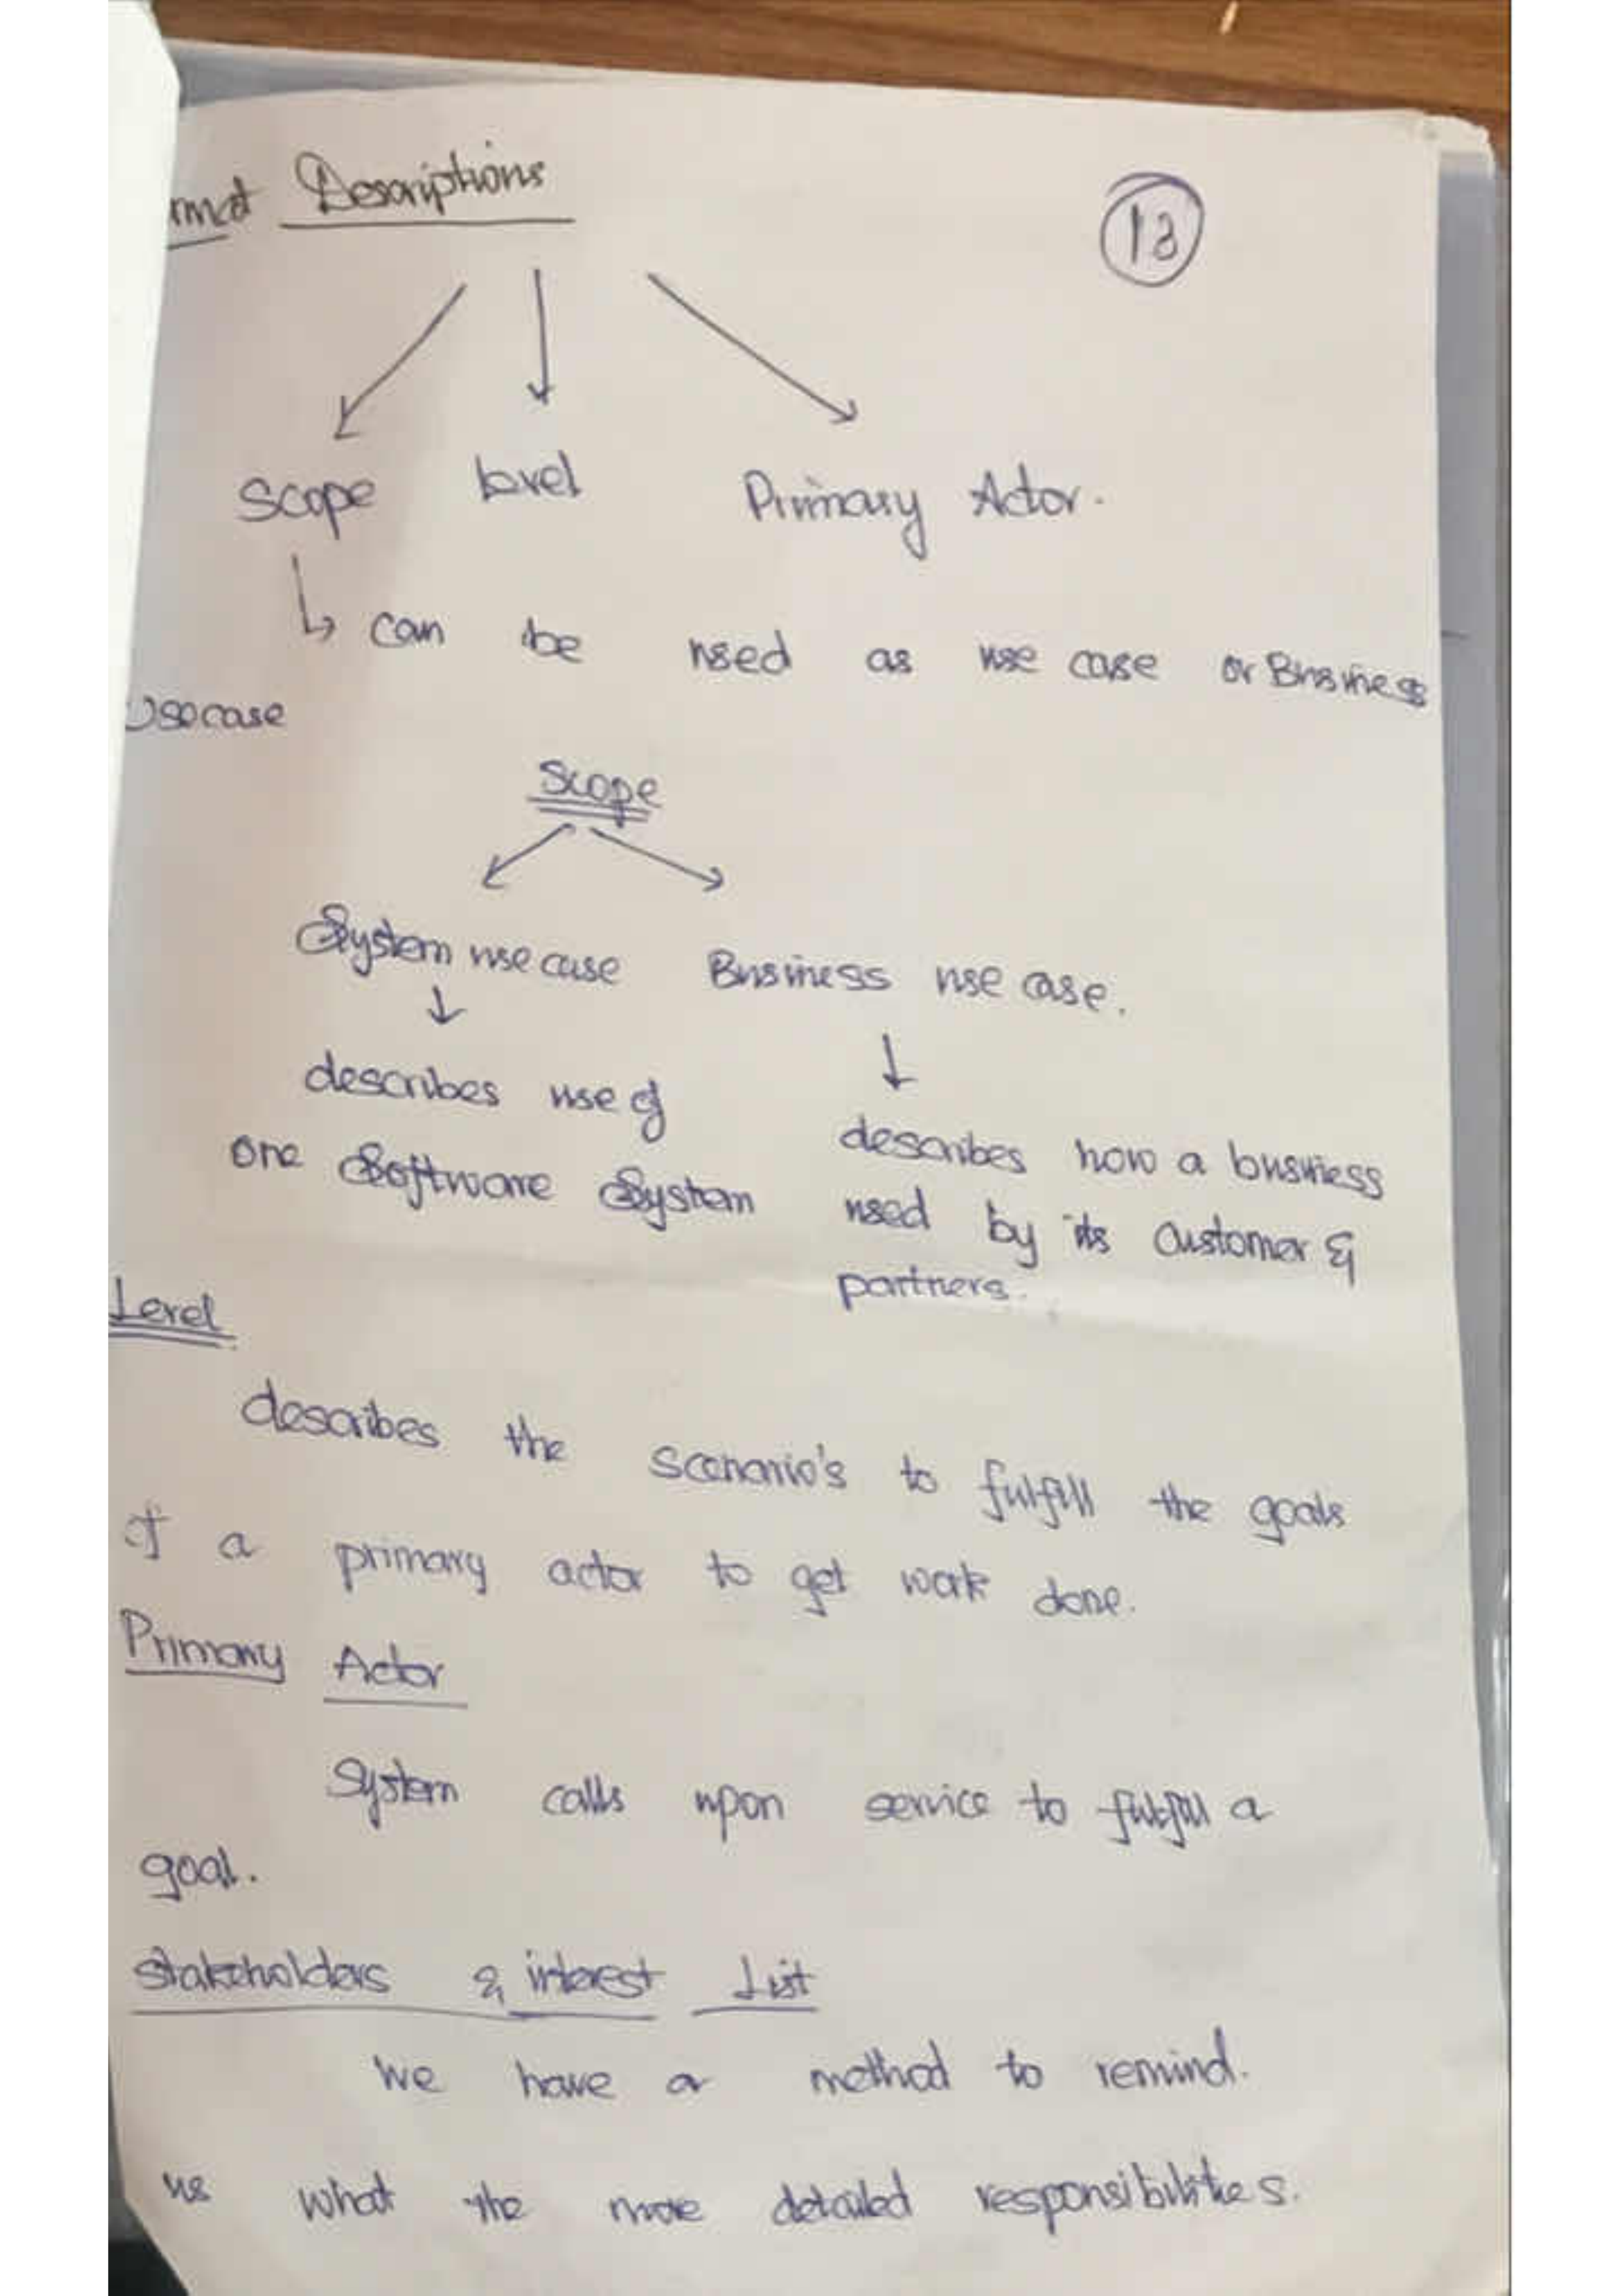 rmat Descriptions
Scope level Primary Actor.
can be used as use case or Business
Usecase
Scope
System use case Business use case.
describes use of
one Software System
describes how a business
used by its Customer &
partners.
Level
describes the Scenario's to fulfill the goals
of a primary actor to get work done.
Primary Actor
System calls upon service to fulfill a
goal.
Stakeholders & interest List
We have a method to remind.
us what the more detailed responsibilities.